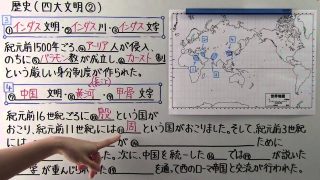 歴史(四大文明②)
3
①インダス文明・②インダス川・③インダス文字
紀元前1500年ごろ、④アーリア人が侵入、
のちに⑤バラモン教が成立し⑥カースト制
という厳しい身分制度が作られた。
4
中国文明・黄河・甲骨文字
紀元前16世紀ごろに殷という国が
おこり、紀元前11世紀には周という国がおこりました。そして、紀元前3世紀
には
ために
した。次に、中国を統一した
では
が説いた
が重んじられ
を通って西のローマ帝国と交流が行われた。
世界地図